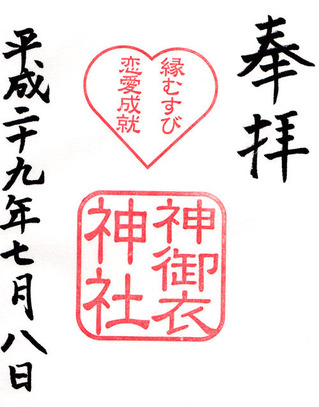 奉拝
縁むすび
恋愛成就
神御衣
神社
平成二十九年七月八日